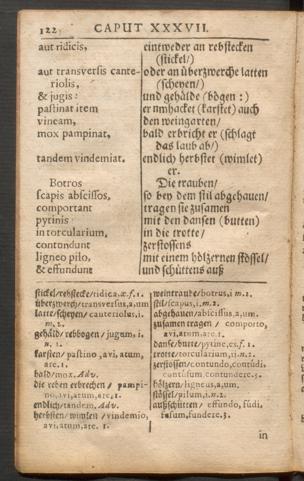 122 CAPUT XXXVII.
aut ridicis, eintweder an rebstecken
(stickel/)
aut transversis cante- oder an überzwerche latten
riolis, (scheyen/)
& jugis: und gehälde (bögen:)
pastinat item er umhacket (karstet) auch
vineam, den weingarten/
mox pampinat, bald erbricht er (schlagt
das laub ab/)
tandem vindemiat. endlich herbstet (wimlet)
er.
Botros Die trauben/
scapis abscissos, so bey dem stil abgehauen/
comportant tragen sie zusamen
pytinis mit den dansen (butten)
in torcularium, in die trotte/
contundunt zerstossens
ligneo pilo, mit einem hölzernen stössel/
& effundunt und schüttens auß
stickel/rebstecke/ridica,x.f.1.
überzwerch/transversus,a,um
latte/scheyen/cauteriolus,i.
m.2.
gehäld/rebbogen/jugum,i.
n.2.
karsten/pastino,avi,atum,
are.1.
bald/mox.Adv.
die reben erbrechen/pampi-
no,avi,atum,are.1.
endlich/tandem.Adv.
herbsten/wimlen/vindemio,
avi,atum,are.1.
weintraube/botrus,i m.2.
stil/scapus,i.m.2.
abgehauen/abscissus,a,um.
zusamen tragen/comporto,
avi,atum,are.1.
danse/butte/pytine,es.f.1.
trotte/torcularium,ii.n.2.
zerstossen/contundo,contúdi.
contusum,contundere.3.
hölzern/ligneus,a,um.
stössel/pilum,i.n.2.
außschütten/effundo,fúdi.
fusum,fundere.3.
in